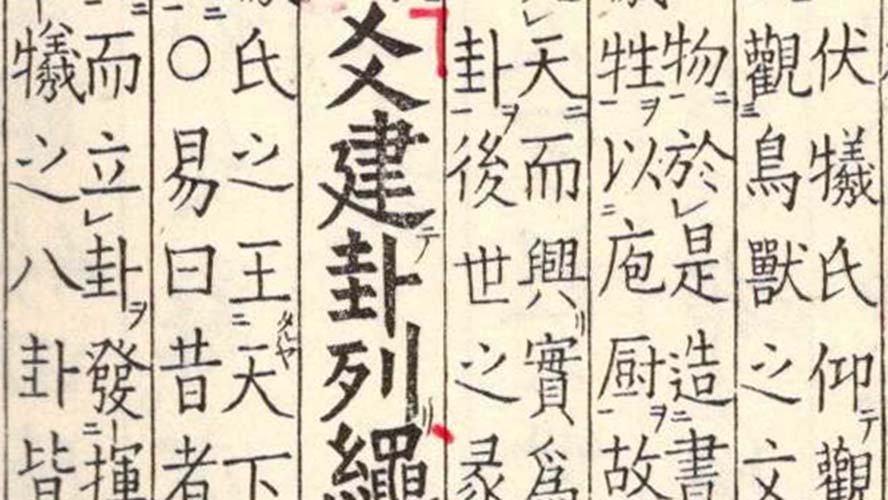 伏犧氏仰觀
觀鳥獸之文
物於是造書
牲以庖厨故
天而興實爲
卦後世之
爻建卦列繩
氏之王天下
〇易曰昔者
而立卦發揮
犧之八卦皆